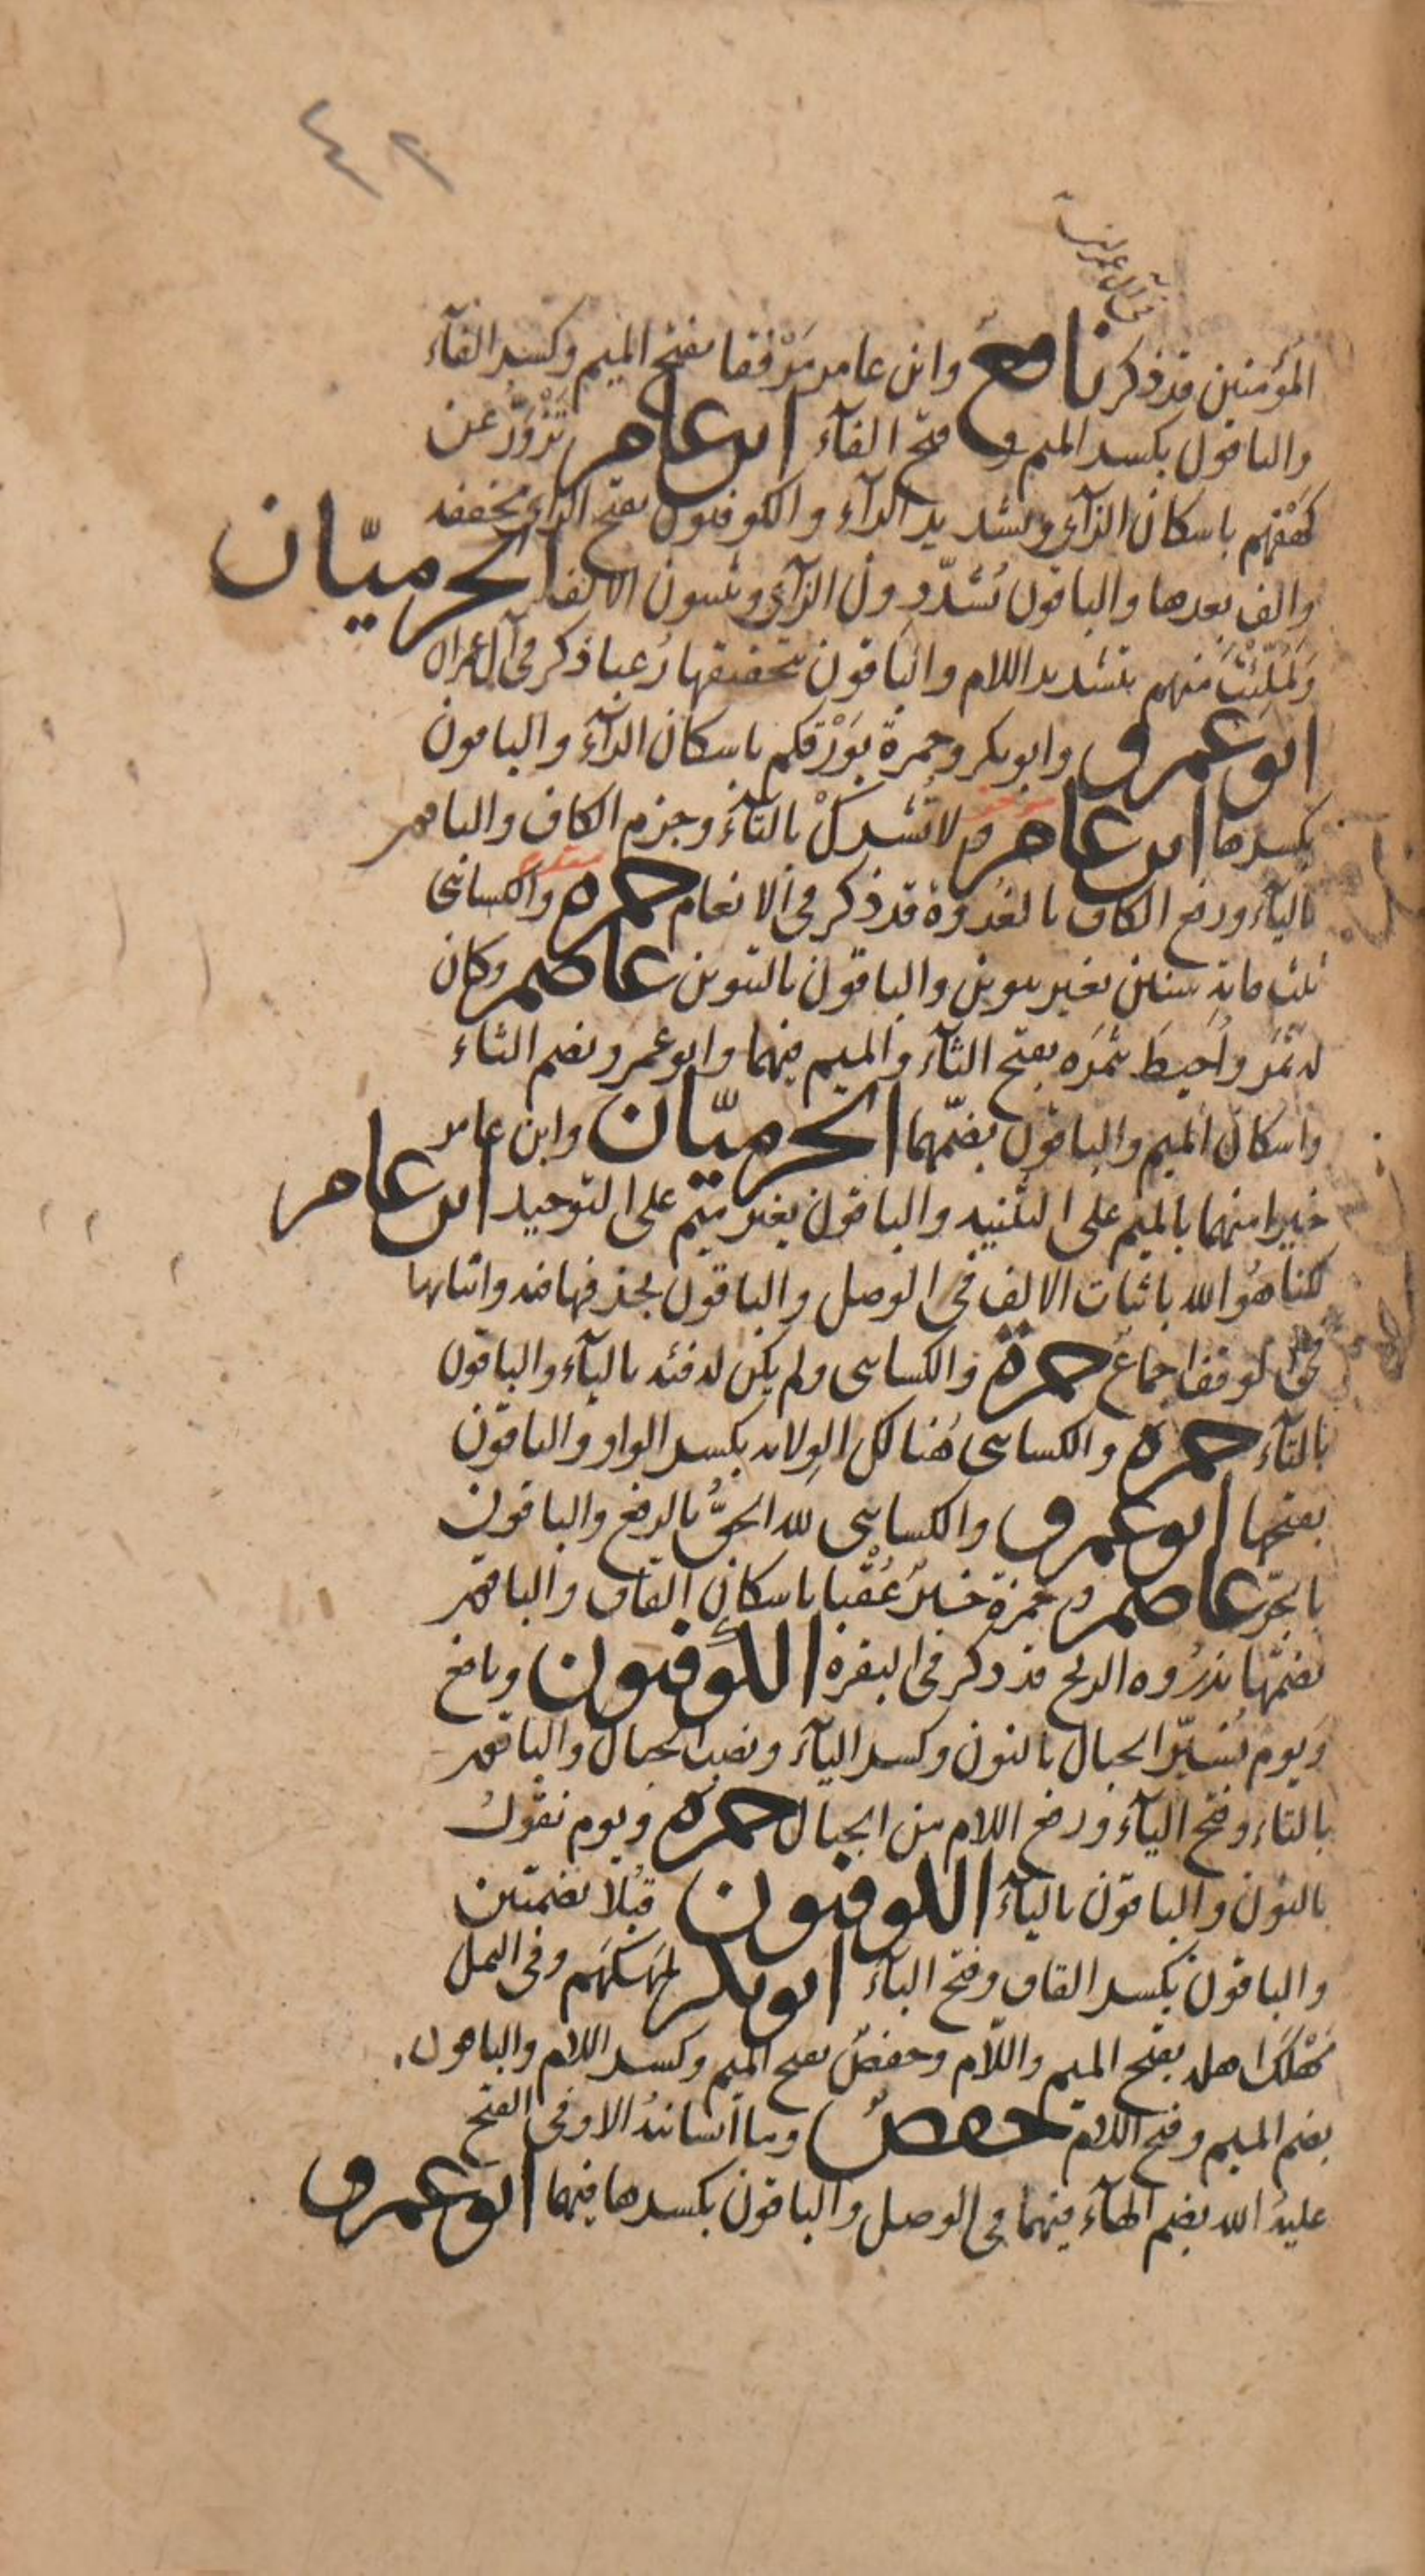 ٤٢
في آل عمران
المؤمنين قد ذكر نافع وابن عامر مَرْفِقا بفتح الميم وكسر الفآء
والباقون بكسر الميم وفتح الفآء ابن عامر تَزْوَرُّ عن
كهفهم باسكان الزآى وتشديد الرآء والكوفيون بفتح الزاى مخففه
والف بعدها والباقون يُشدّدون الزآى ويثبتون الالف الحرميّان
وَلَمُلِّئْتَ منهم بتشديد اللام والباقون بتخفيفها رُعبا ذكر فى آل عمران
ابو عمرو وابو بكر وحمزة بوَرْقكم باسكان الرآء والباقون
بكسرها ابن عامر ولا تُشركْ بالتآء وجزم الكاف والباقون
باليآء ورفع الكاف بالغدوة قد ذكر فى الانعام حمزه والكسائى
ثلث مايه سنين بغير تنوين والباقون بالتنوين عاصم وكان
له ثَمَر واُحيطَ بثَمَرَه بفتح الثآء والميم فيهما وابو عمرو بضم الثاء
واسكان الميم والباقون بضمّهما الحرميّان وابن عامر
خيرا منهما بالميم على التثنيه والباقون بغير ميم على التوحيد ابن عامر
لكنا هُو الله باثبات الالف فى الوصل والباقون بحذفها منه واثباتها
فى الوقف اجماعٌ حمزة والكساىى ولم يكن له فئه باليآء والباقون
بالتآء حمزه والكساىى هُنالك الوِلايه بكسر الواو والباقون
بفتحها ابو عمرو والكساىى لله الحقُّ بالرفع والباقون
بالجرّ عاصم وحمزة خيرٌ عُقْبا باسكان القاف والباقون
بضمّها تذرُوه الريح قد ذكر فى البقرة الكوفيون ونافع
وَيوم نُسَيّر الجبال بالنون وكسر اليآء ونصب الجبال والباقون
بالتاء وفتح اليآء ورفع اللام من الجبال حمزه ويوم نقولُ
بالنون والباقون باليآء الكوفيون قُبُلا بضمتين
والباقون بكسر القاف وفتح البآء ابو بكر لمَهلَكهم وفى النمل
مَهْلَكَ اهله بفتح الميم واللآم وحفصٌ بفتح الميم وكسر اللام والباقون
بضم الميم وفتح اللام حفصٌ وما انسانيهُ الا وفى الفتح
عليهُ الله بضم الهآء فيهما فى الوصل والباقون بكسرها فيهما ابو عمرو